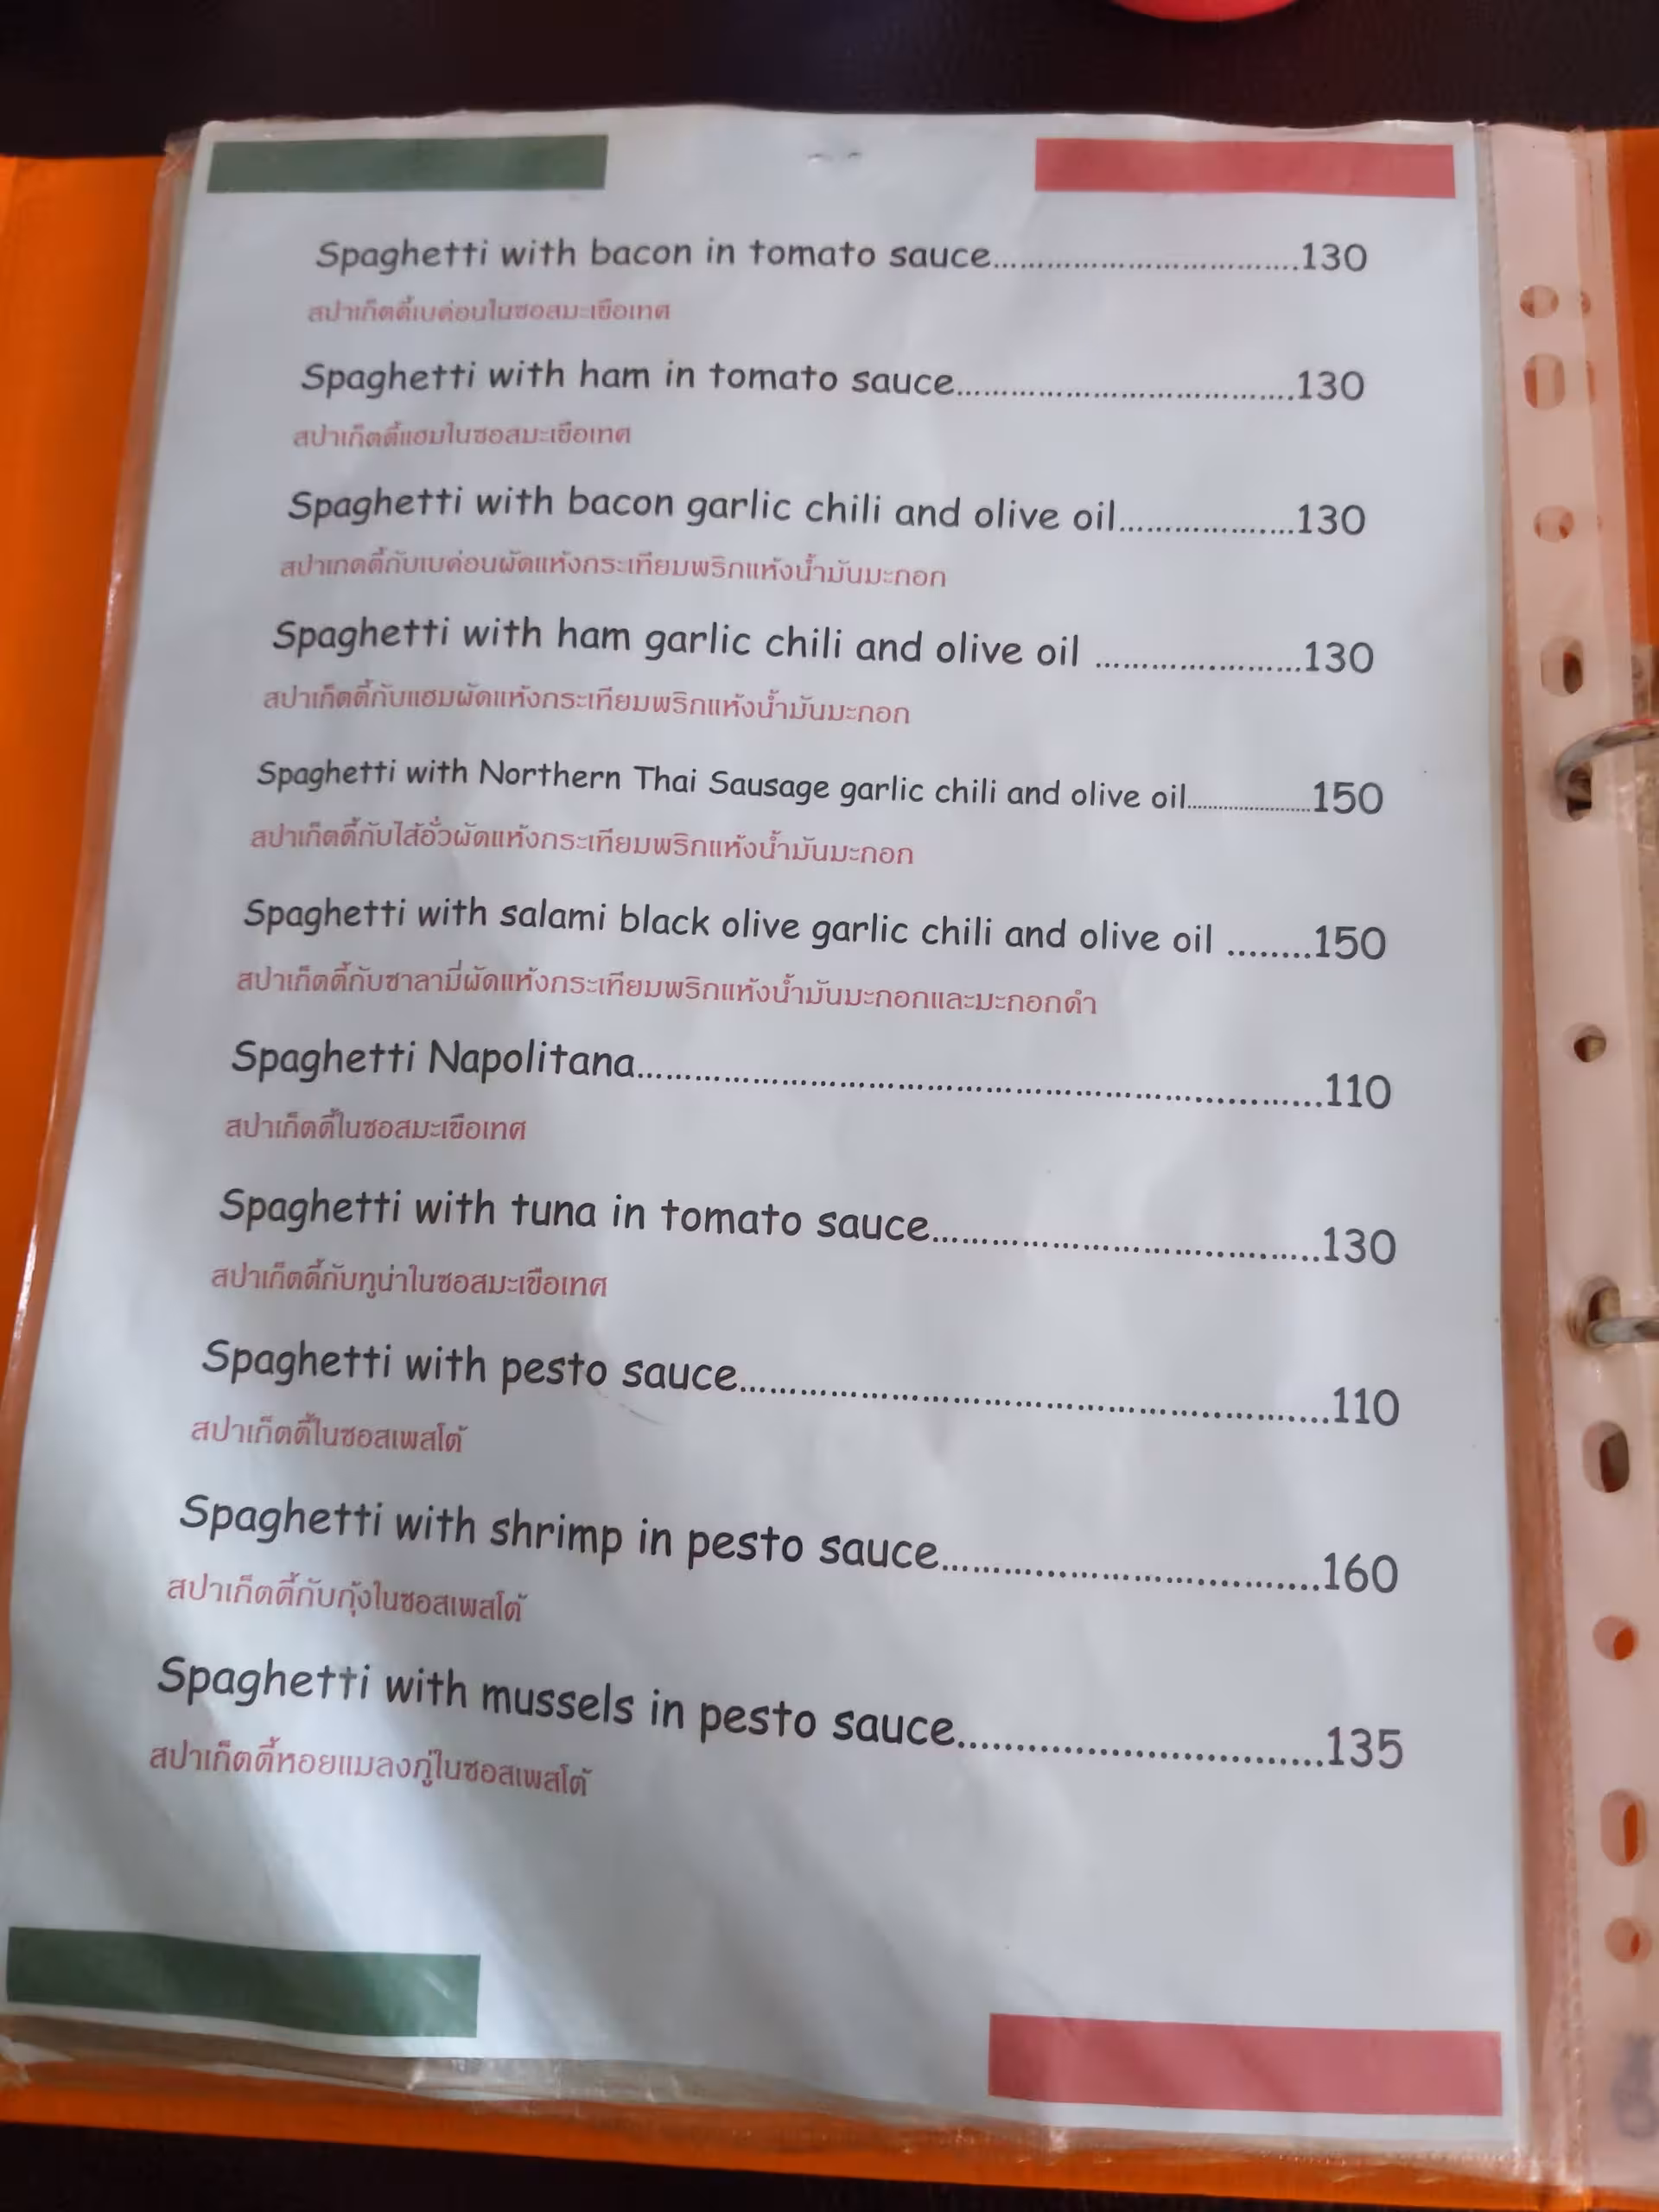 Spaghetti with bacon in tomato sauce.................................130
สปาเก็ตตี้เบค่อนในซอสมะเขือเทศ
Spaghetti with ham in tomato sauce....................................130
สปาเก็ตตี้แฮมในซอสมะเขือเทศ
Spaghetti with bacon garlic chili and olive oil...................130
สปาเกตตี้กับเบค่อนผัดแห้งกระเทียมพริกแห้งน้ำมันมะกอก
Spaghetti with ham garlic chili and olive oil ......................130
สปาเก็ตตี้กับแฮมผัดแห้งกระเทียมพริกแห้งน้ำมันมะกอก
Spaghetti with Northern Thai Sausage garlic chili and olive oil.......................150
สปาเก็ตตี้กับไส้อั่วผัดแห้งกระเทียมพริกแห้งน้ำมันมะกอก
Spaghetti with salami black olive garlic chili and olive oil ........150
สปาเก็ตตี้กับซาลามี่ผัดแห้งกระเทียมพริกแห้งน้ำมันมะกอกและมะกอกดำ
Spaghetti Napolitana......................................................................110
สปาเก็ตตี้ในซอสมะเขือเทศ
Spaghetti with tuna in tomato sauce.......................................130
สปาเก็ตตี้กับทูน่าในซอสมะเขือเทศ
Spaghetti with pesto sauce..........................................................110
สปาเก็ตตี้ในซอสเพสโต้
Spaghetti with shrimp in pesto sauce.....................................160
สปาเก็ตตี้กับกุ้งในซอสเพสโต้
Spaghetti with mussels in pesto sauce..................................135
สปาเก็ตตี้หอยแมลงภู่ในซอสเพสโต้